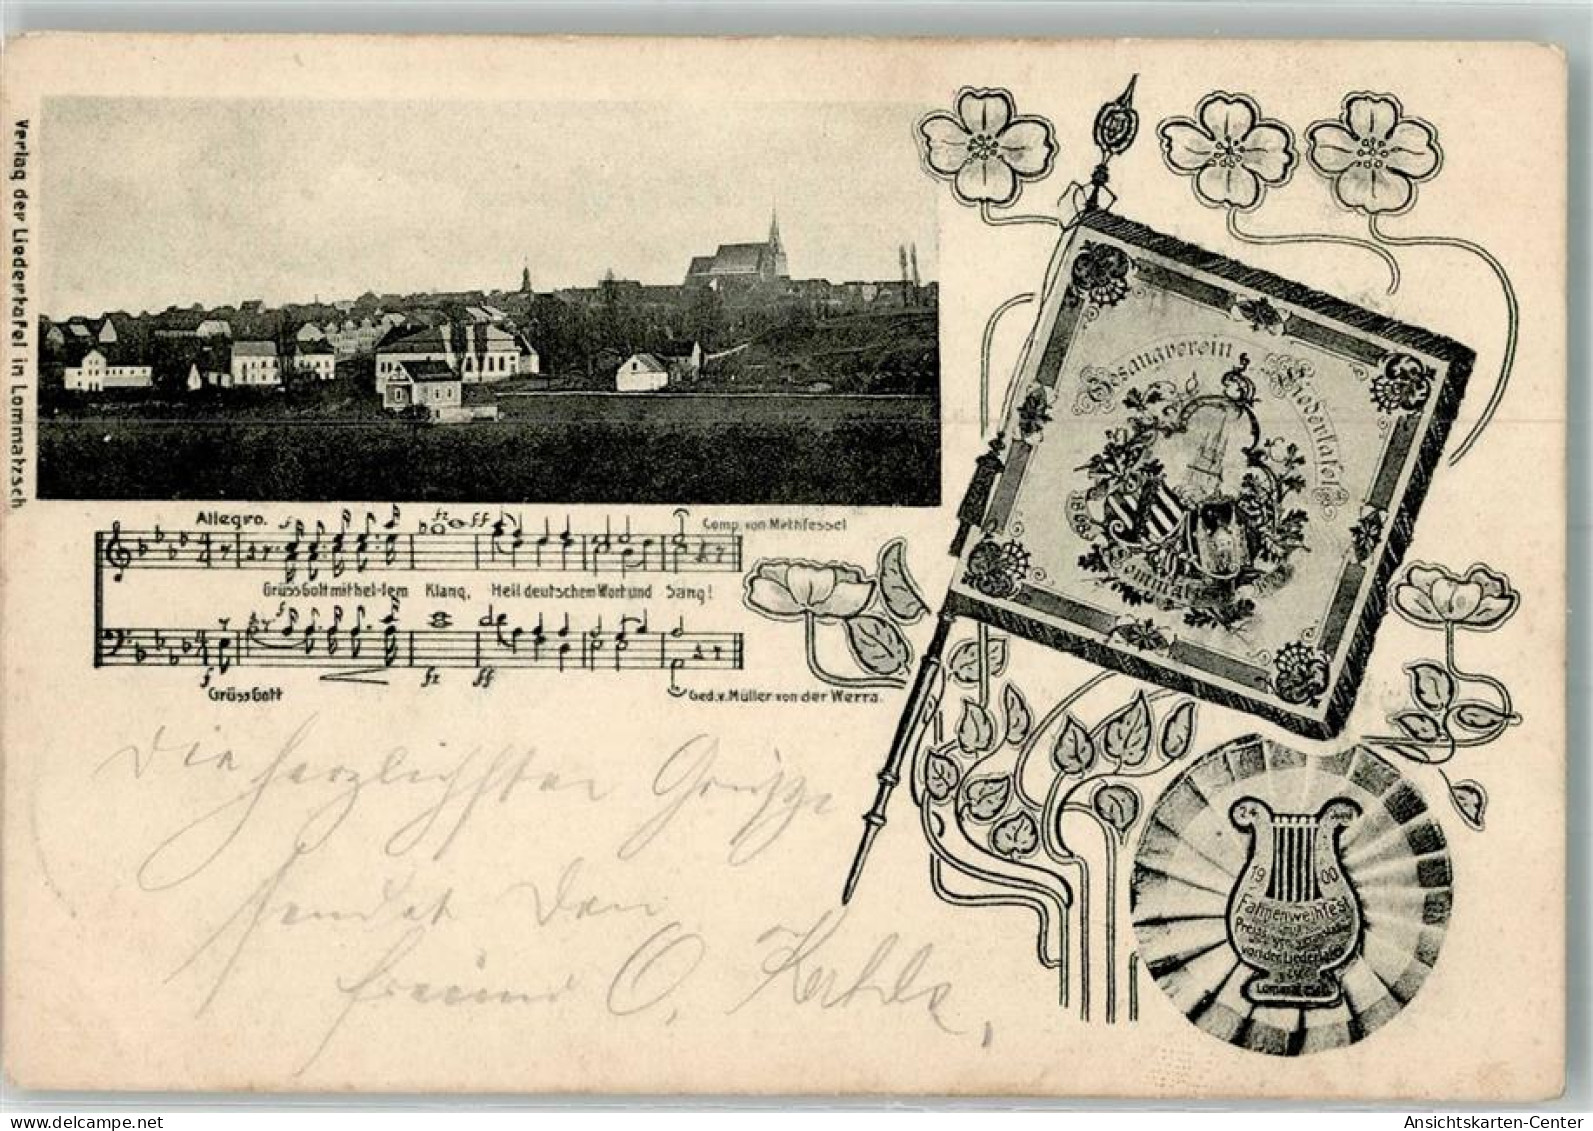 Verlag der Liedertafel in Lommatzsch
Allegro.
Comp. von Methfessel
Grüss Gott mit hel-lem Klang, Heil deutschem Wort und Sang!
Grüss Gott
Ged. v. Müller von der Werra.
Gesangverein Liedertafel
1868
Lommatzsch
24 Juni
1900
Fahnenweihfest
von der Liedertafel
Lommatzsch
Die herzlichsten Grüße
sendet Dein
Freund O.
Ansichtskarten-Center